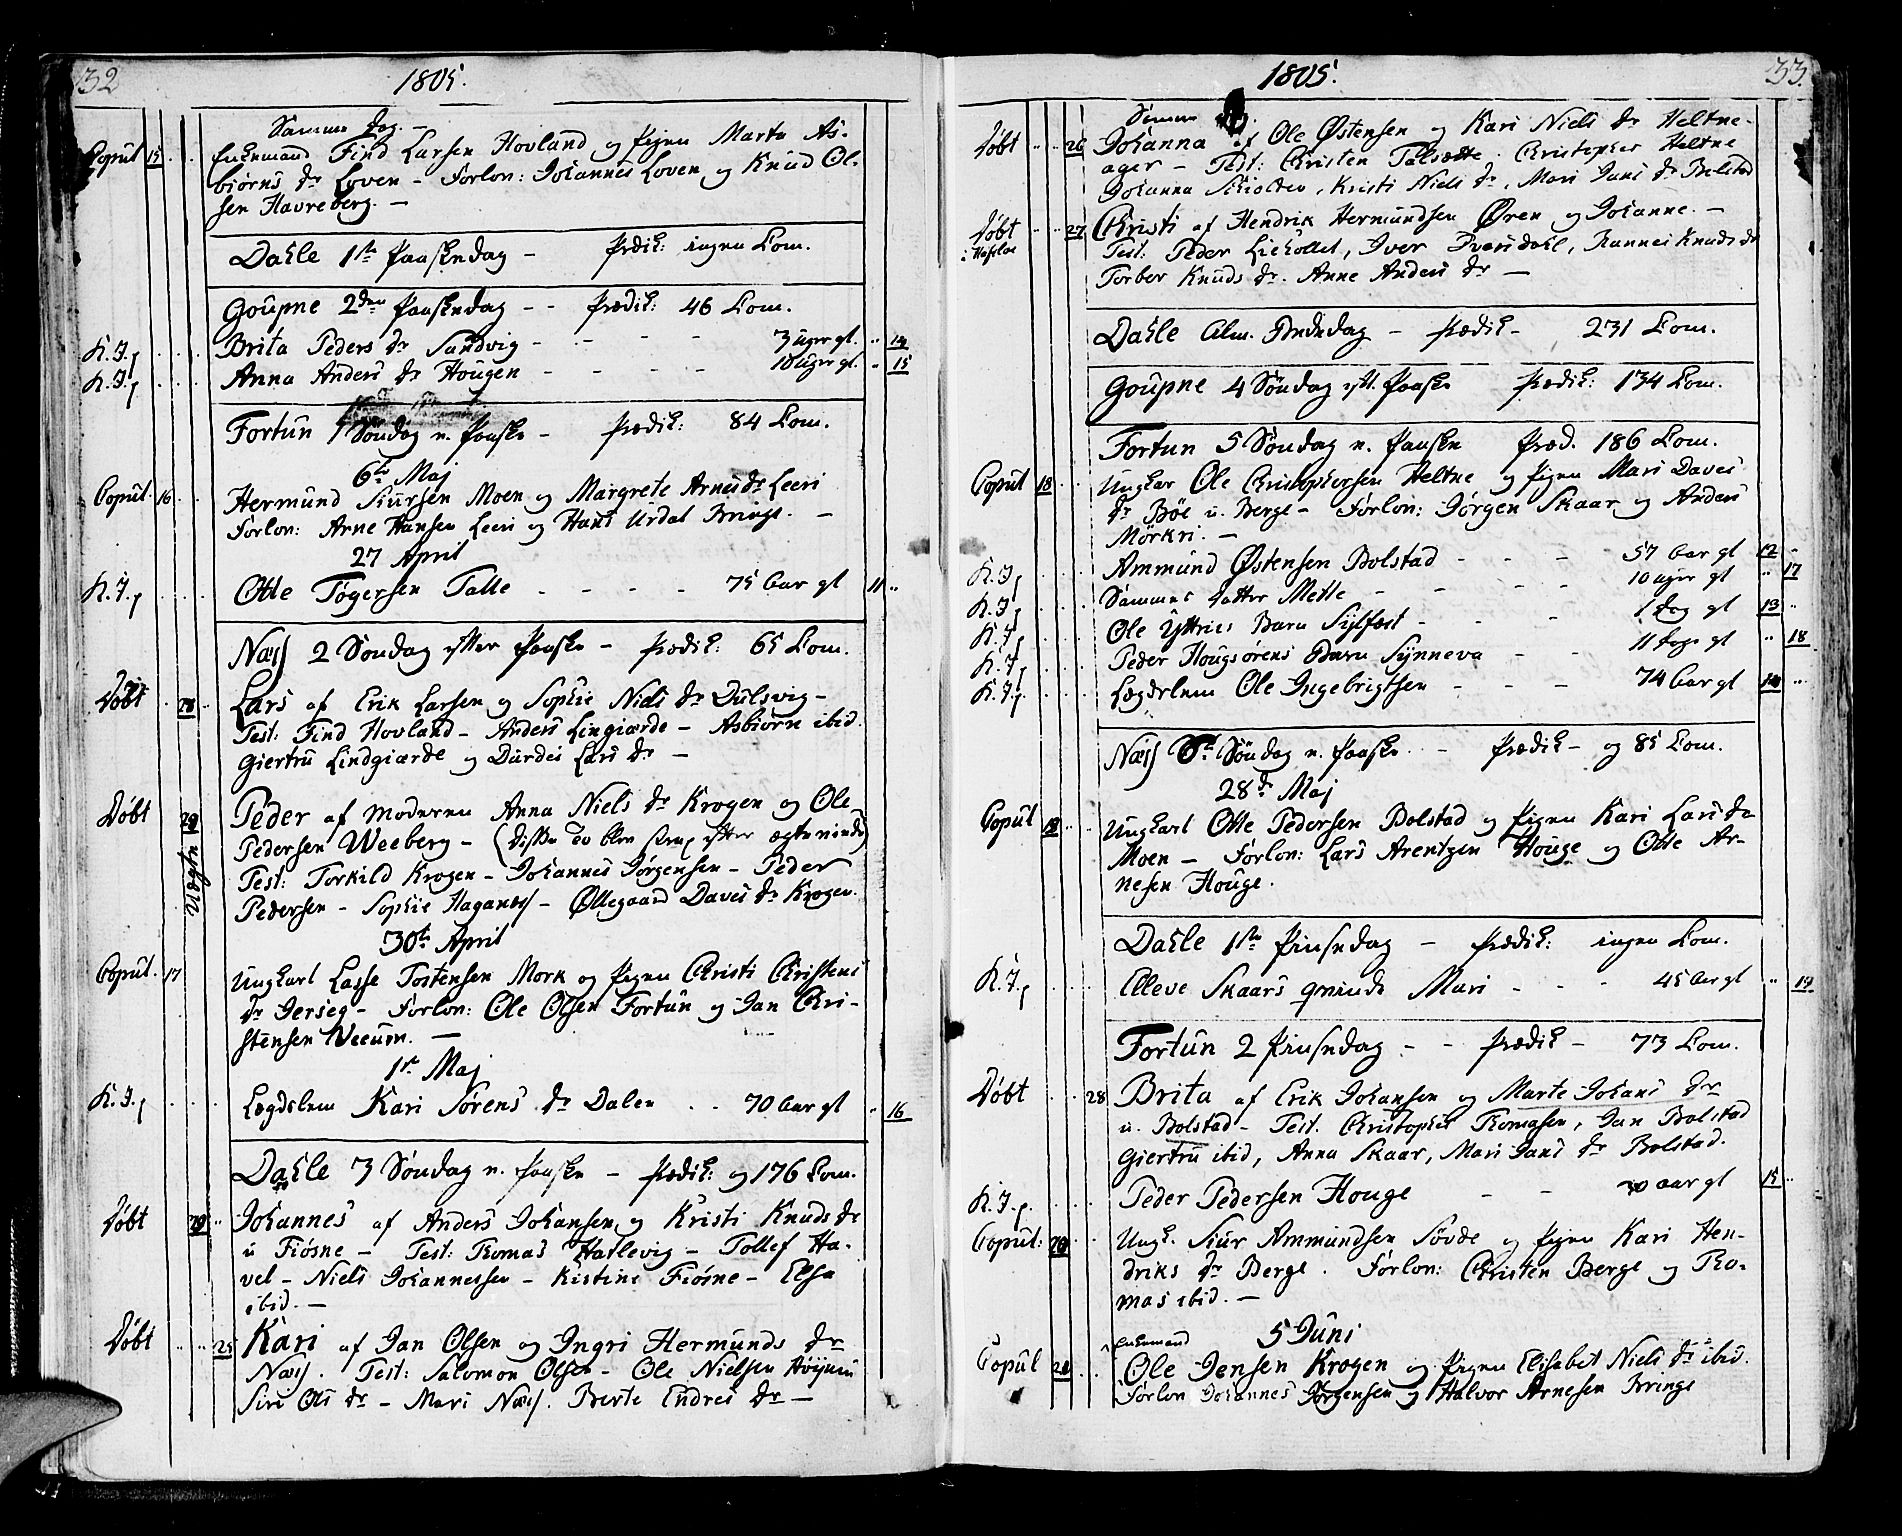 32
1805.
Samme Dag. –
Copul 15 Enkemand Find Larsen Hovland og Pigen Marta As-
biørns Dr Loven – Forlov: Johannes Loven og Knud Ol-
sen Havreberg. –
Dahle 1ste Paaskedag – Prædik: ingen Com.
Goupne 2den Paaskedag – – Prædik: 46 Com.
K. J. Brita Peders Dr Sandvig – – – – 3 uger gl. 14
K. J. Anna Anders Dr Hougen – – – – 10 uger gl. 15
Fortun 1 Søndag n. Paaske – Prædik: 84 Com.
6te Maj
Copul. 16 Hermund Siursen Moen og Margrete Arnes Dr Leeri
Forlov: Arne Hansen Leeri og Hans Urdal Bringe. –
27 April
K. J. Otte Tøgersen Talle – – – – 75 Aar gl 11
Næss 2 Søndag efter Paaske – Prædik: 65 Com.
Døbt Lars af Erik Larsen og Sophie Niels Dr Dulsvig –
Test: Find Hovland – Anders Lingiærde – Asbiørn ibid.
Giertru Lindgiærde og Durdei Lars Dr –
Døbt Peder af Moderen Anna Niels Dr Krogen og Ole
Pedersen Weeberg – (disse to blev efter
Uægte
Test: Torkild Krogen – Johannes Jørgensen – Peder
Pedersen – Sophie Haganæs – Øllegaard Daves Dr Krogen.
30te April
Copul. 17 Ungkarl Lasse Tostensen Mork og Pigen Christi Christens
Dr Jerseg – Forlov: Ole Olsen Fortun og Jan Chri-
stensen Veeum. –
1ste Maj
K. J. Lægdslem Kari Sørens Dr Dalen – – 70 Aar gl 16
Dahle 3 Søndag n. Paaske – Prædik: og 176 Com.
Døbt Johannes af Anders Johansen og Kristi Knuds Dr
u Fiøsne – Test: Thomas Hatlevig – Tollef Ha-
vel – Niels Johannessen – Kistine Fiøsne – Elsa
ibid. –
Døbt 25 Kari af Jan Olsen og Ingri Hermunds Dr
Næss. Test: Salomon Olsen – Ole Nielsen
Siri Ols Dr – Mari Næss. Berte Endres Dr –
33.
1805.
Samme Dag.
Døbt 26 Johanna af Ole Østensen og Kari Niels Dr Heltne-
ager – Test: Christen Talsætte. Christopher Heltne
Johanna Skiolden, Kristi Niels Dr, Mari Jans Dr Bolstad
Døbt 27 Christi af Hendrik Hermundsen Øren og Johanne. –
i Hafslo Test: Peder Liehollet, Iver Kvæsdahl, Rannei Knuds Dr
Torber Knuds Dr. Anne Anders Dr –
Dahle Alm. Bededag – Prædik – 231 Com.
Goupne 4 Søndag eft. Paaske Prædik: 134 Com.
Fortun 5 Søndag n. Paaske Præd. 186 Com.
Copul 18 Ungkar Ole Christophersen Heltne og Pigen Mari Daves
Dr Böe u. Berge – Forlov: Jørgen Skaar og Anders
Mörkri. –
K. J. Ammund Østensen Bolstad – – – 57 Aar gl 12
K. J. Sammes Datter Mette – – – – 10 uger gl 17
K. J. Ole Yttries Barn Sylfæst – – – 1 Dag gl 13
K. J. Peder Hougsørens Barn Synneva – – 11 Dage gl 18
K. J. Lægdslem Ole Ingebrigtsen – – – 74 Aar gl 14
Næss 6te Søndag n. Paaske. – Prædik – og 85 Com.
28de Maj
Copul 19 Ungkarl Otte Pedersen Bolstad og Pigen Kari Lars Dr
Moen – Forlov: Lars Arentzen Houge og Otte Ar-
nesen Houge.
Dahle 1ste Pinsedag – Prædik: ingen Com.
K. J. Elleve Skaars qvinde Mari – – – 45 Aar gl 19
Fortun 2 Pinsedag – – Prædik – 73 Com.
Døbt 28 Brita af Erik Johansen og Marte Johans Dr
u. Bolstad – Test. Christopher Thomasen, Jan Bolstad
Giertru ibid, Anna Skaar, Mari Jans Dr Bolstad.
K. J. Peder Pedersen Houge – – Aar gl 15
Copul: 20 Ungk. Siur Ammundsen Søvde og Pigen Kari Hen-
driks Dr Berge. Forlov: Christen Berge og Tho-
mas ibid. –
5 Juni
Enkemand
Copul 21 Ole Jensen Krogen og Pigen Elisabet Niels Dr ibid.
Forlov Johannes Jørgensen og Halvor Arnesen Bringe